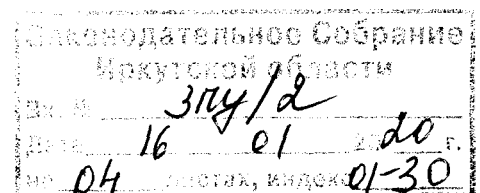 Законодательное Собрание
Иркутской области
Вх. № 3пу/2
Дата 16 01 2020 г.
на 04 листах, индекс 01-30